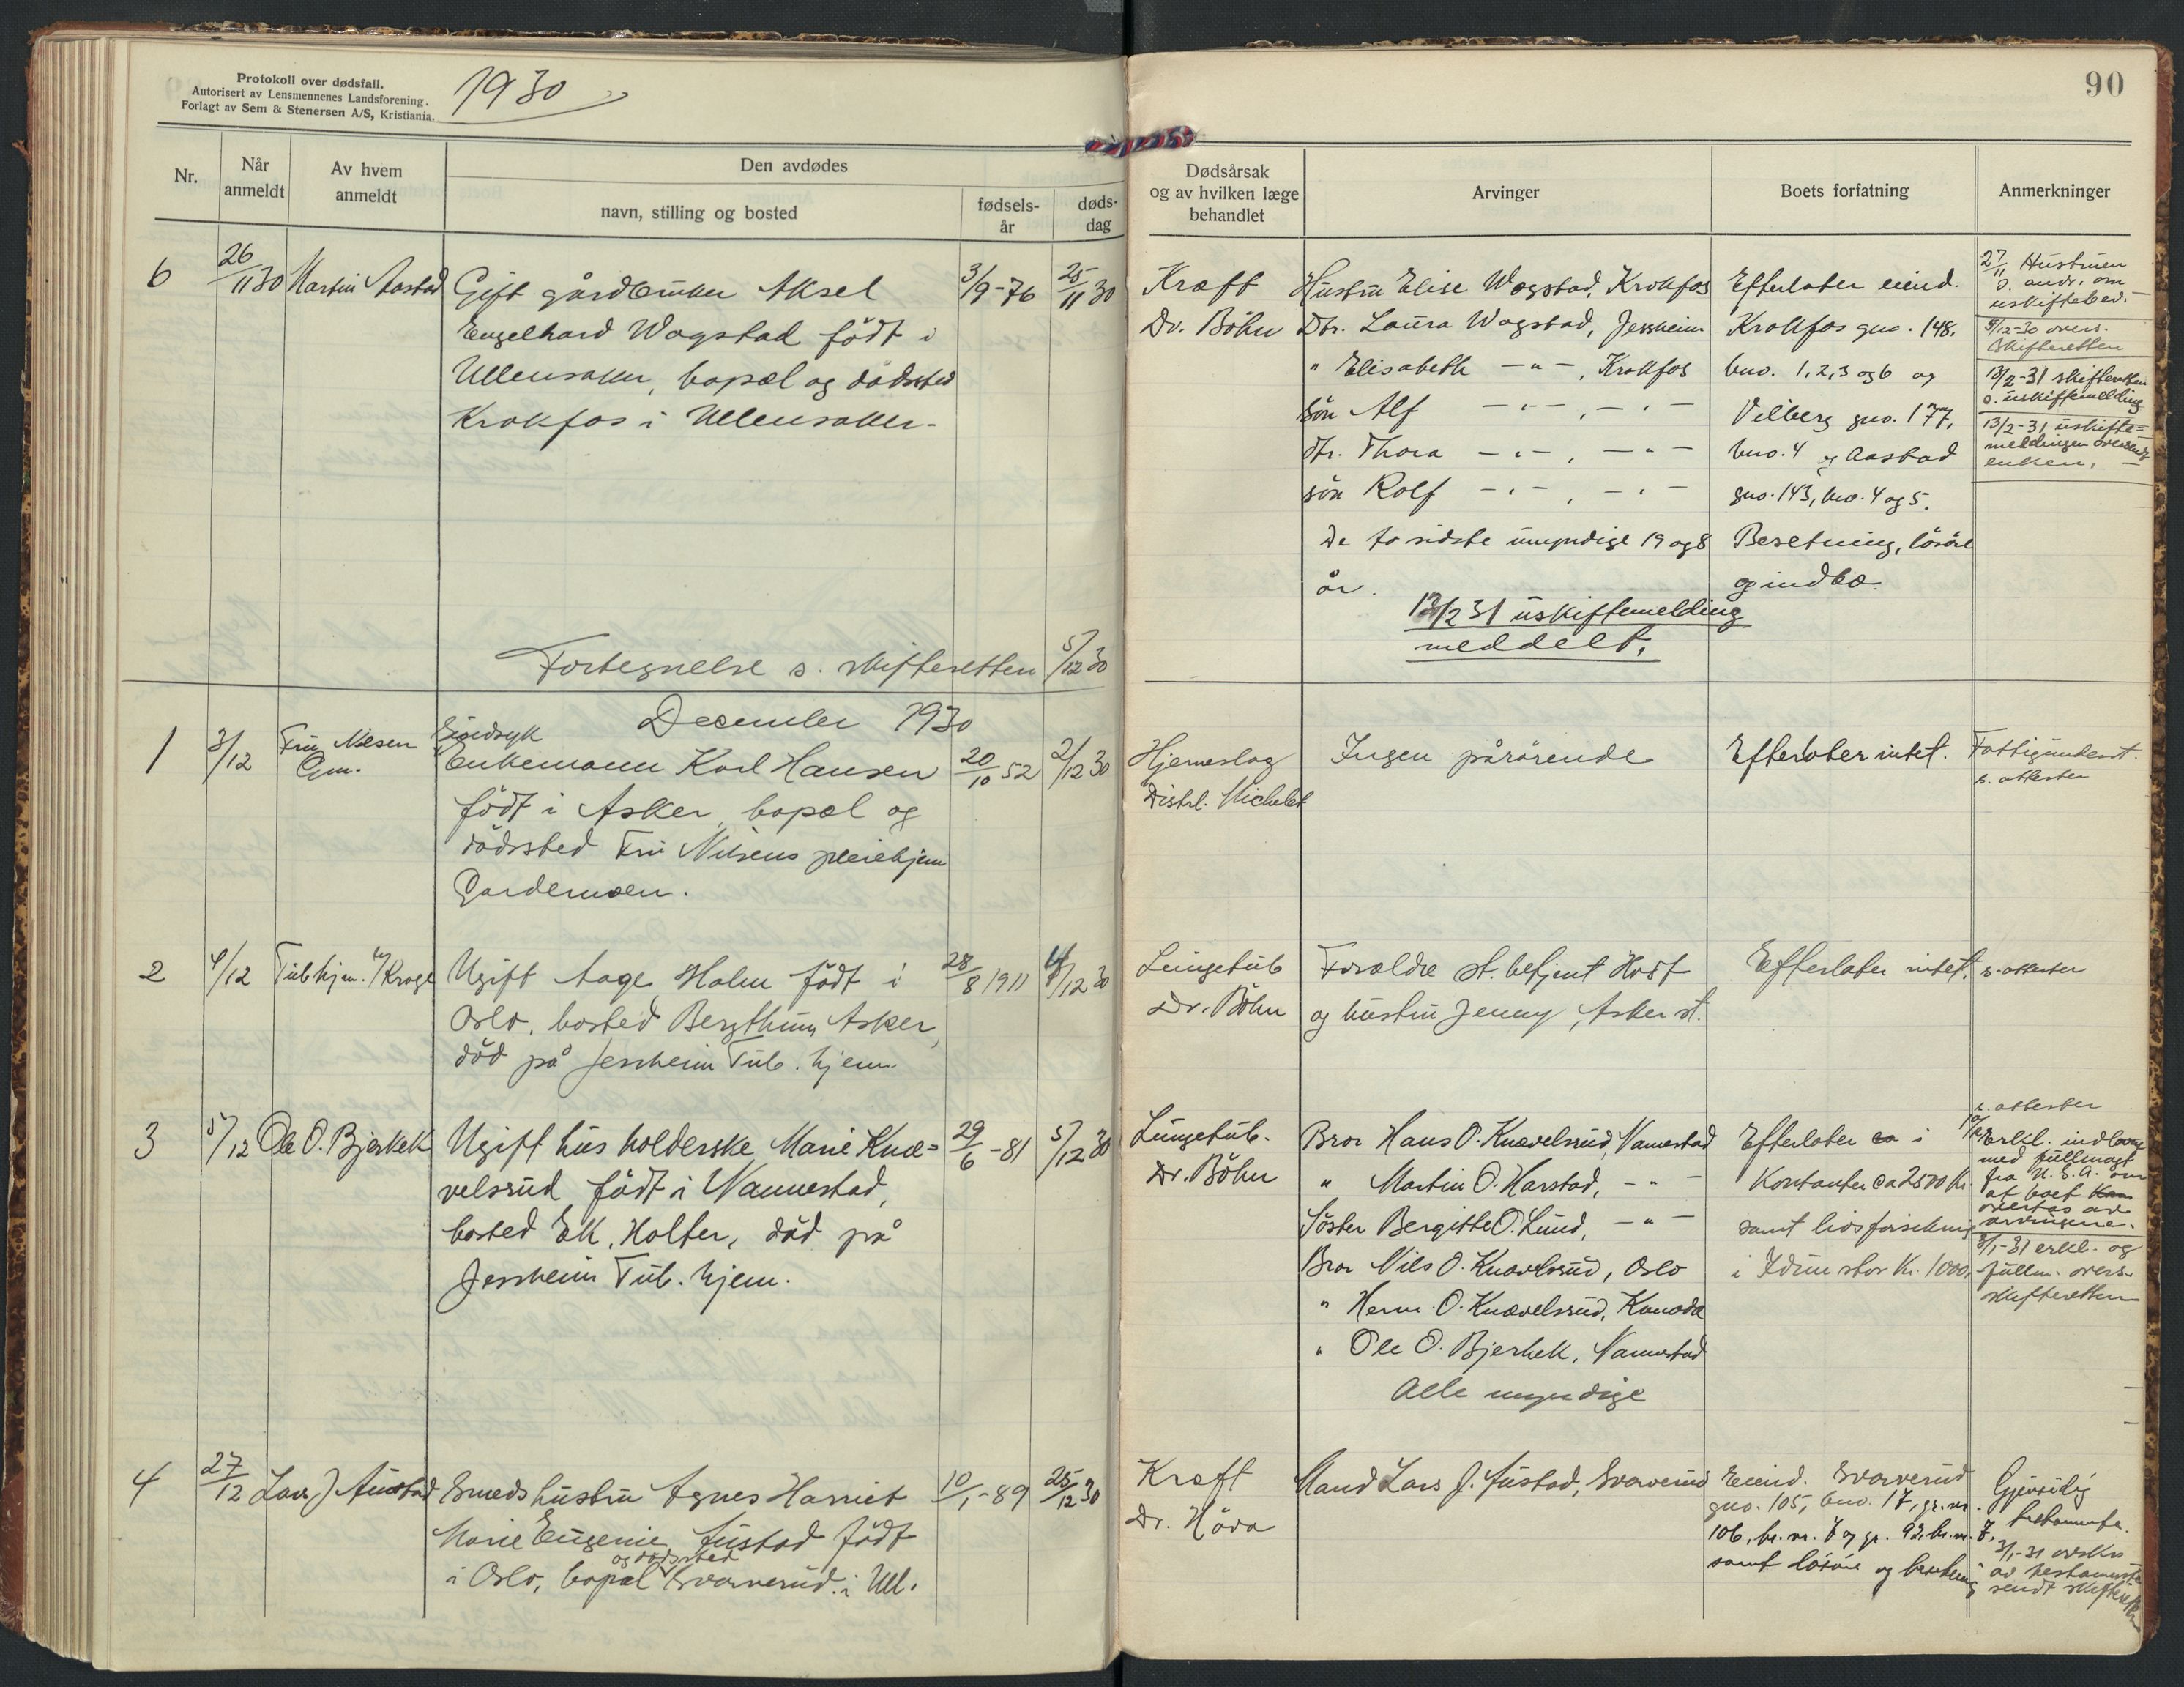 Protokoll over dødsfall.
Autorisert av Lensmennenes Landsforening.
Forlagt av Sem & Stenersen A/S, Kristiania.
1930
90
Nr.
Når anmeldt
Av hvem anmeldt
Den avdødes
navn, stilling og bosted
fødsels-år
døds-dag
Dødsårsak og av hvilken læge behandlet
Arvinger
Boets forfatning
Anmerkninger
6
26/11 30
Martin Aastad
Gift gårdbruker Aksel
Engelhard Wogstad født i
Ullensaker, bopæl og dødssted
Krokfos i Ullensaker.
3/9-76
25/11 30
Kræft
Dr. Böhn
Hustru Elise Wogstad, Krokfos
Dtr. Laura Wogstad, Jessheim
" Elisabeth -"-, Krokfos
søn Alf -"-, -"-
dtr. Thora -"-, -"-
søn Rolf -"-, -"-
De to sidste umyndige 19 og 8
år.
13/2 31 uskiftemelding
meddelt.
Efterlater eiend.
Krokfos gno. 148,
bno. 1, 2, 3 og 6 og
Vilberg gno. 177,
bno. 4 og Aastad
gno. 143, bno. 4 og 5.
Besetning, løsøre
og indbo.
27/11 Hustruen
s. andr. om
uskiftebev.
5/12-30 overs.
skifteretten
13/2-31 skifteretten
o. uskiftemelding
13/2-31 uskifte=
meldingen oversendt
enken.
Fortegnelse s. skifteretten 5/12 30
December 1930
1
3/12
Fru Nilsen
Gm.
Sindsyk
Enkemann Karl Hansen
født i Asker, bopæl og
dødssted Fru Nilsens pleiehjem
Gardermoen.
20/10 52
2/12 30
Hjerneslag
Distrl. Michelet
Ingen pårørende
Efterlater intet.
Fattigunderst.
s. attester
2
4/12
Tub hjm. v/ Kroge
Ugift Aage Holm født i
Oslo, bosted Bergthun, Asker,
død på Jessheim Tub. hjem.
28/8 1911
4/12 30
Lungetub
Dr. Böhn
Forældre st. betjent Holt
og hustru Jenny, Asker st.
Efterlater intet.
s. attester
3
5/12
Ole O. Bjerkek
Ugift husholderske Marie Knæ=
velsrud født i Nannestad,
bosted Ek, Holter, død på
Jessheim Tub. hjem.
29/6-81
5/12 30
Lungetub.
Dr. Böhn
Bror Hans O. Knævelsrud, Nannestad
" Martin O. Harstad, -"-
Søster Bergitte O. Lund, -"-
Bror Nils O. Knævelsrud, Oslo
" Herm. O. Knævelsrud, Kanada
" Ole O. Bjerkek, Nannestad
Alle myndige
Efterlater ca i
Kontanter ca 2500 kr.
samt livsforsikring
i Idun stor kr. 1000,
s. attester
Erkl. indlevert
med fullmagt
fra U.S.A. om
at boet kan
overtas av
arvingene.
3/1-31 erkl. og
fullm. overs.
skifteretten
4
27/12
Lars J Austad
Smeds hustru Agnes Harriet
Marie Eugenie Austad født
i Oslo, bopæl og dødssted Svarverud i Ull.
10/1-89
25/12 30
Kræft
Dr. Höva
Mand Lars J. Austad, Svarverud
Eiend. Svarverud
gno. 105, bno. 17, gr.nr.
106, br.nr. 7 og gr. 92, br.nr. 7,
samt løsøre og besetning
Gjensidig
testamente.
3/1-31 avskr.
av testamente
sendt skifteretten